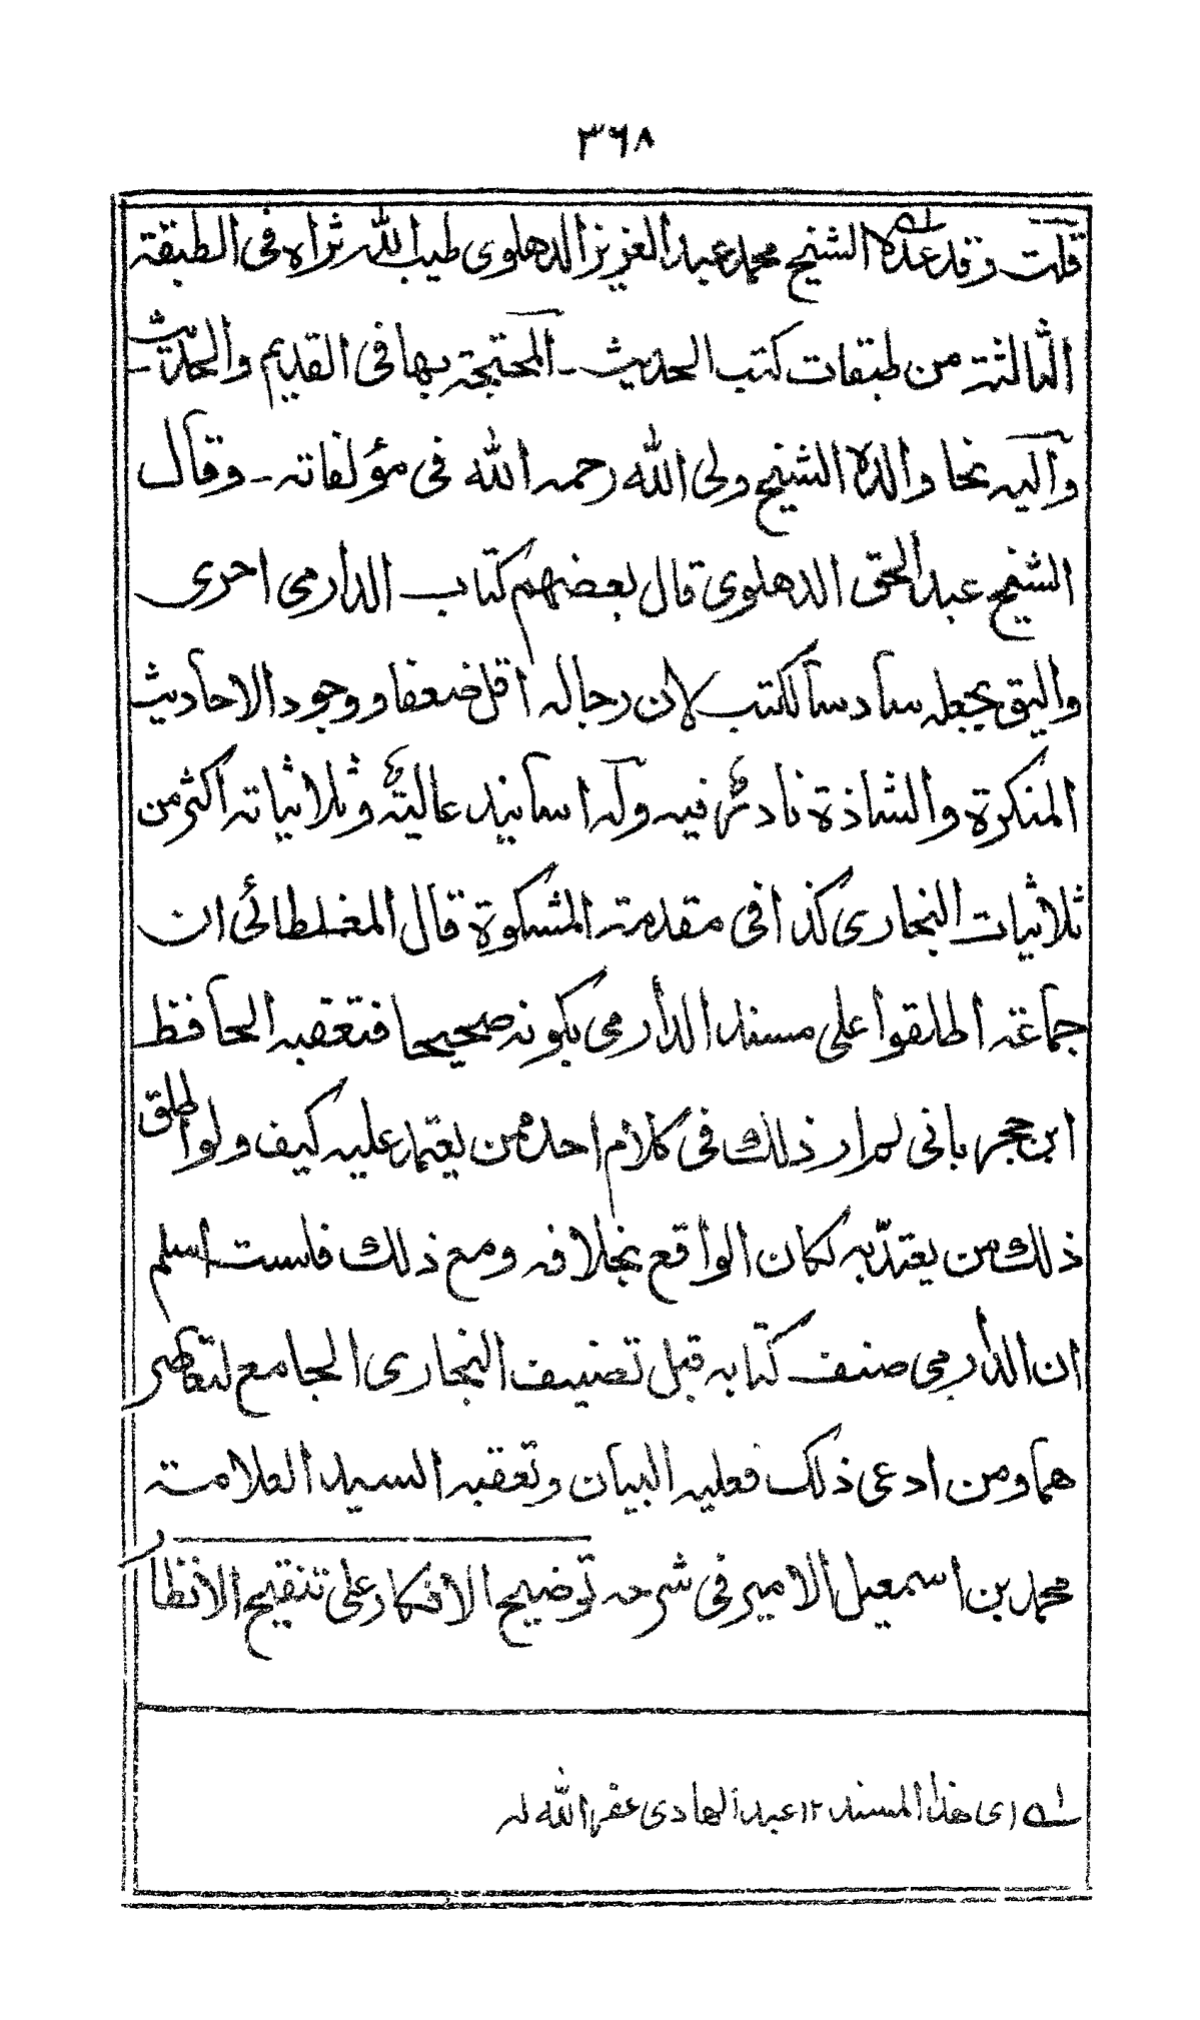 ٣٦٨
قلت وقد عده الشيخ محمد عبد العزيز الدهلوى طيب الله ثراه فى الطبقة
الثالثة من طبقات كتب الحديث ـ المحتجة بها فى القديم والحديث ـ
واليه نحا والده الشيخ ولى الله رحمه الله فى مؤلفاته ـ وقال
الشيخ عبد الحق الدهلوى قال بعضهم كتاب الدارمى احرى
واليق بجعله سادسا لكتب لان رجاله اقل ضعفا ووجود الاحاديث
المنكرة والشاذة نادرٌ فيه وله اسانيد عاليةٌ وثلاثياته اكثر من
ثلاثيات البخارى كذا فى مقدمة المشكوة قال المغلطائى ان
جماعة اطلقوا على مسند الدارمى بكونه صحيحا فتعقبه الحافظ
ابن حجر بانى لم ار ذلك فى كلام احد ممن يعتمد عليه كيف ولو اطلق
ذلك من يعتدّ به لكان الواقع بخلافه ومع ذلك فلست اسلم
ان الدارمى صنف كتابه قبل تصنيف البخارى الجامع لتعاصر
هما ومن ادعى ذلك فعليه البيان وتعقبه السيد العلامة
محمد بن اسمعيل الامير فى شرحه توضيح الافكار على تنقيح الانظار
له اى هذا المسند ١٢ عبد الهادى غفر الله له